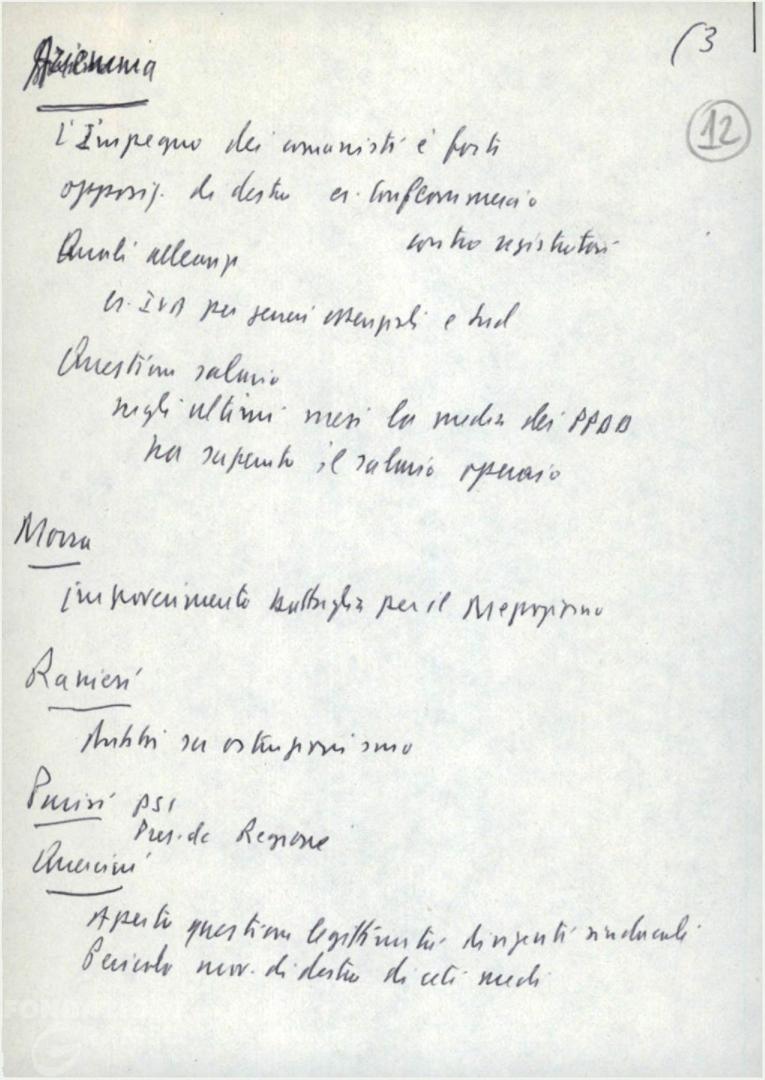 (3
12
l'Impegno dei comunisti è forte
opposiz. di destra es. Confcommercio
contro registratori
Quali alleanze
es. IVA per generi essenziali e Sud
Questione salario
negli ultimi mesi la media dei PPDD
ha superato il salario operaio
Morra
impoverimento battaglia per il Mezzogiorno
Ranieri
su ostruzionismo
PSI
Pres. de Regione
Quercini
Aperta questione legittimità dirigenti sindacali
Pericolo mov. di destra di ceti medi
FONDAZIONE